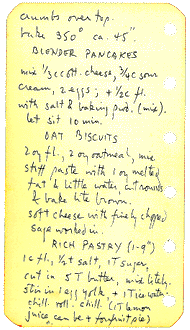 crumbs over top.
bake 350° ca. 45".
BLENDER PANCAKES
mix 1/3 c cott. cheese, 3/4 c sour
cream, 2 eggs; + 1/2 c fl.
with salt & baking pwd. (mix).
let sit 10 min.
OAT BISCUITS
2 oz fl., 2 oz oatmeal, mix
stiff paste with 1 oz melted
fat & little water, cut rounds
& bake lite brown.
soft cheese with finely chopped
sage worked in.
RICH PASTRY (1-9")
1 c fl., 1/4 t salt, 1 T super,
cut in 5 T butter, mix litely.
stir in 1 egg yolk, + 1 T ice water
chill. roll. chill. (lemon
juice can be + for fruit pie)